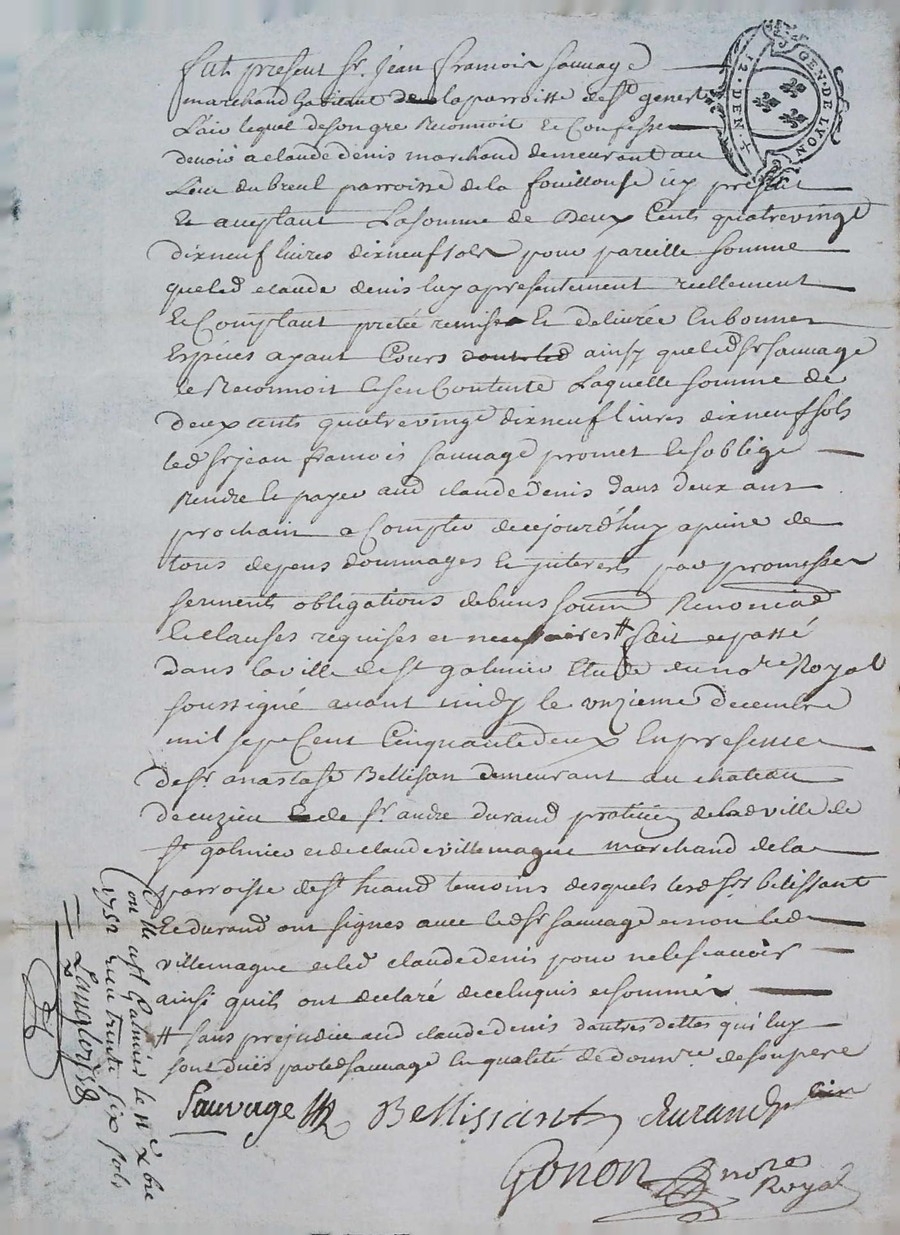 GEN·DE·LYON
12·DEN
fut present Sr. jean francois sauvage
marchand habitant de la parroisse de St genest
Lair lequel de son gre Reconnoit et Confesse
devoir a claude denis marchand demeurant au
Lieu du breul parroisse de la fouillouse icy present
Et aceptant La somme de Deux Cents quatrevingt
dixneuf livres dixneuf sols pour pareille somme
que led claude denis luy a presentement reellement
Et Comptant pretée remise Et delivrée En bonnes
Especes ayant Cours ainsy que led Sr sauvage
le Reconnoit Et sen Contente Laquelle somme de
deux cents quatrevingt dixneuf livres dixneuf sols
led Sr jean francois sauvage promet Et soblige
Rendre Et payer aud claude denis dans deux ans
prochain a Compter de cejourd'huy a peine de
tous depens dommages Et interests par promesses
serments obligations de biens soum Renonciaõ
Et clauses requises et necessaires # fait et passé
dans la ville de St galmier Etude du nore Royal
soussigné avant midy le unzieme decembre
mil sept Cent Cinquante deux En presence
de Sr. anastase Bellisan demeurant au chateau
de cuzieu et de Sr. andre durand praticien de lad ville de
St galmier et de claude villemagne marchand de la
parroisse de St heand temoins desquels lesd Srs belissant
Et durand ont signes avec led Sr sauvage et non led
villemagne et led claude denis pour ne le scavoir
ainsi quils ont declaré de ce enquis et sommés
# sans prejudice aud claude denis dautres dettes qui luy
sont dües par led sauvage En qualité de donnre de son pere
Sauvage Bellissant durand
Gonon nore
Royal
Clle a St Galmier le 11e xbre
1752 reçu trente six sols
Langlois